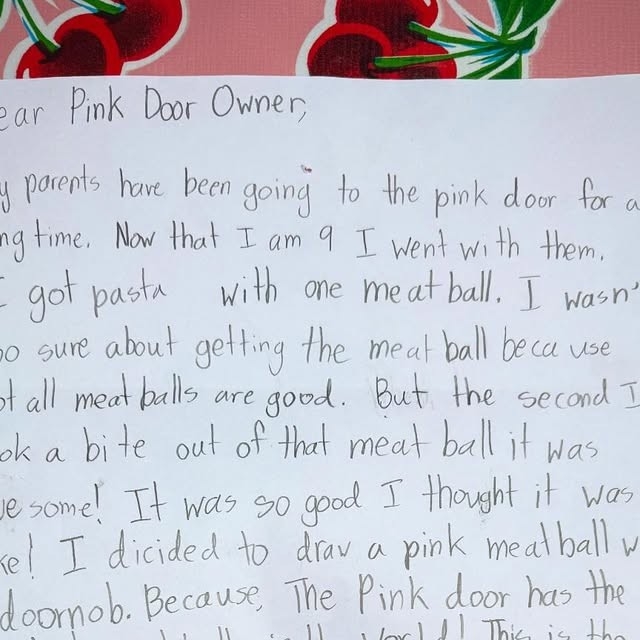 ear Pink Door Owner,
y parents have been going to the pink door for a
ng time. Now that I am 9 I went with them.
I got pasta with one meat ball. I wasn'
oo sure about getting the meat ball because
ot all meat balls are good. But the second I
ok a bite out of that meat ball it was
ve some! It was so good I thought it was
ke! I dicided to drav a pink meat ball w
doornob. Because, The Pink door has the
World! This is the